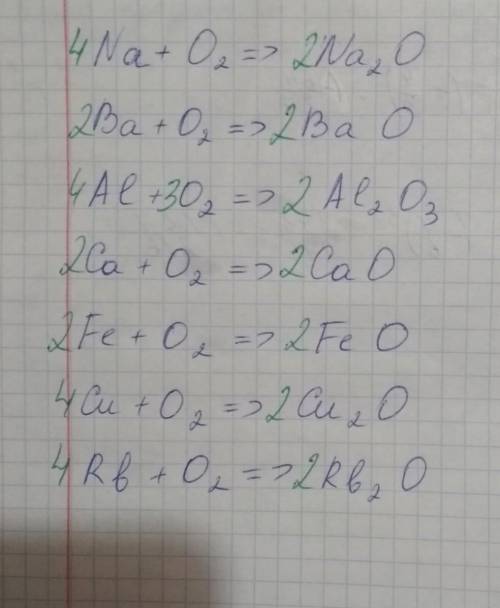 4Na + O₂ => 2Na₂O
2Ba + O₂ => 2BaO
4Al + 3O₂ => 2Al₂O₃
2Ca + O₂ => 2CaO
2Fe + O₂ => 2FeO
4Cu + O₂ => 2Cu₂O
4Rb + O₂ => 2Rb₂O